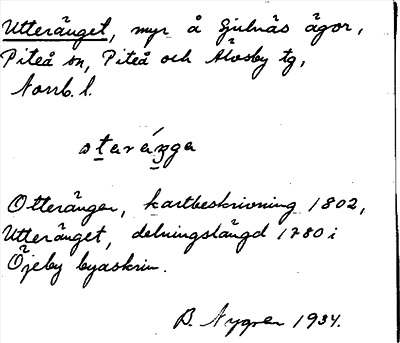 Utteränget, myr å Sjulnäs ägor,
Piteå sn, Piteå och Älvsby tg,
Norrb. l.
Otterängen, kartbeskrivning 1802,
Utteränget, delningslängd 1780 i
Öjeby byaskrin.
B. Nygren 1934.